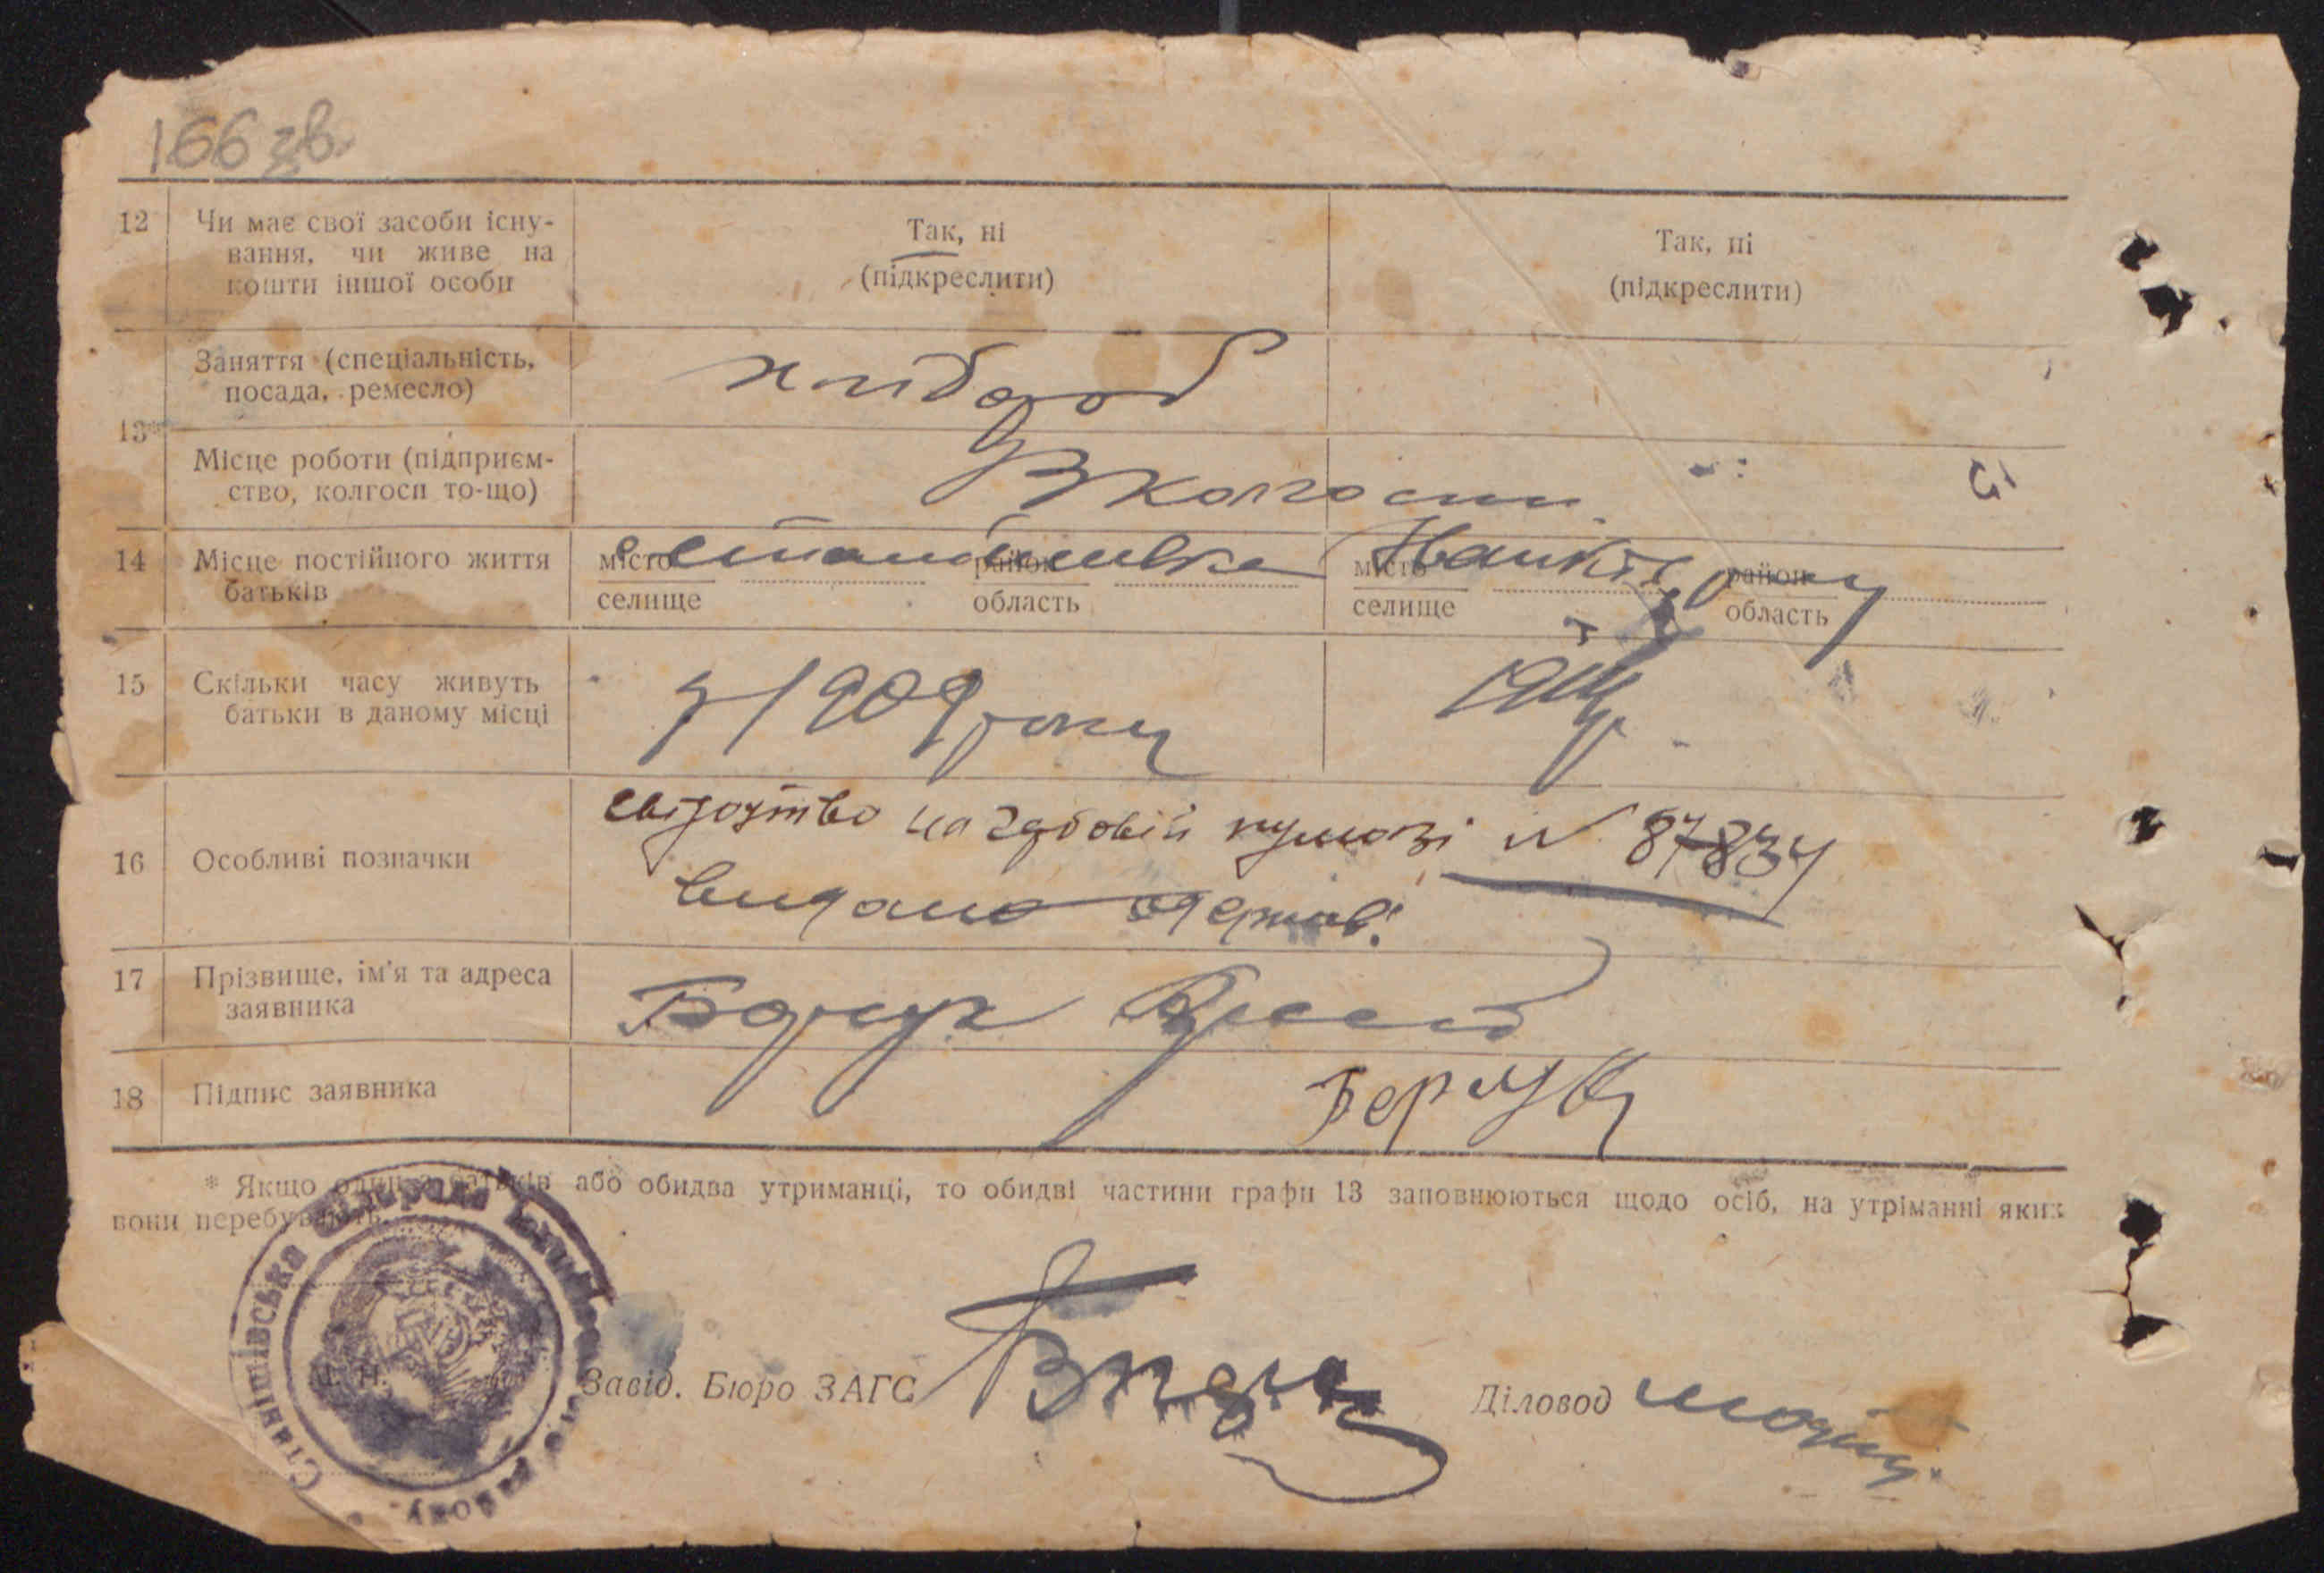 166 зв.
12 Чи має свої засоби існу-
вання, чи живе на
кошти іншої особи
Так, ні
(підкреслити)
Так, ні
(підкреслити)
13*
Заняття (спеціальність,
посада, ремесло)
хлібороб
Місце роботи (підприєм-
ство, колгосп то-що)
В колгоспи
14 Місце постійного життя
батьків
місто
селище
район
область
місто
селище
район
область
15 Скільки часу живуть
батьки в даному місці
з 1909 року
16 Особливі позначки
свідоцтво на гербовій N 87834
видано
17 Прізвище, ім'я та адреса
заявника
18 Підпис заявника
* Якщо один з батьків або обидва утриманці, то обидві частини графи 13 заповнюються щодо осіб, на утріманні яких
вони перебувають.
Станішівська
М. П.
Завід. Бюро ЗАГС
Діловод